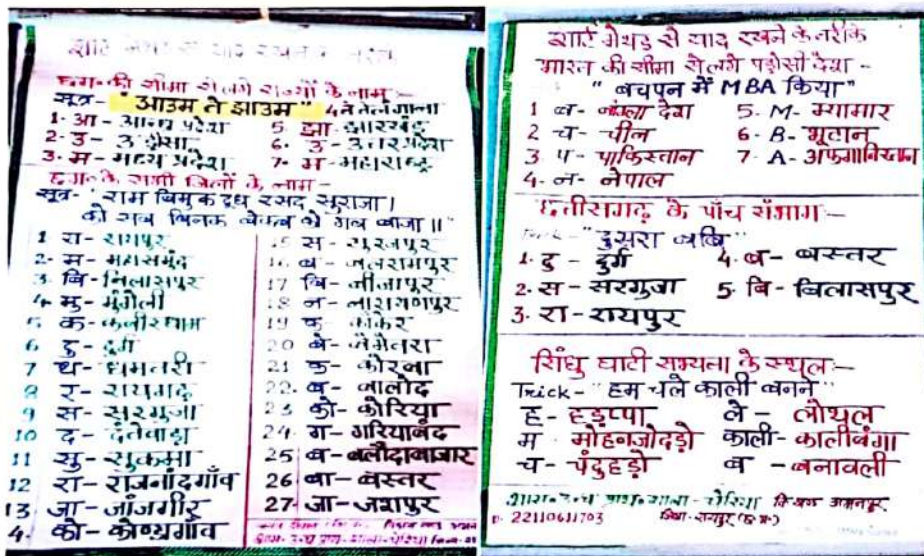 शार्ट मेथड से याद रखने के तरीके
छग. की सीमा से लगे राज्यों के नाम-
सूत्र- "आउम ते झाउम" 4 ते तेलंगाना
1- आ- आन्ध्र प्रदेश
2- उ- उड़ीसा
3- म- मध्य प्रदेश
5 झा- झारखंड
6. उ- उत्तरप्रदेश
7- म- महाराष्ट्र
छग. के सभी जिलों के नाम-
सूत्र- "राम बिमुक दुध रसद सुराजा।
को सब बिनक बेकब को गब बाजा॥"
1 रा- रायपुर
2- म- महासमुंद
3. बि- बिलासपुर
4. मु- मुंगेली
5 क- कबीरधाम
6 दु- दुर्ग
7 ध- धमतरी
8 र- रायगढ़
9 स- सरगुजा
10 द- दंतेवाड़ा
11 सु- सुकमा
12 रा- राजनांदगाँव
13 जा- जांजगीर
4. को- कोण्डागाँव
15 स- सूरजपुर
16 ब- बलरामपुर
17 बि- बीजापुर
18 न- नारायणपुर
19 क- कांकेर
20 बे- बेमेतरा
21 क- कोरबा
22. ब- बालोद
23 को- कोरिया
24. ग- गरियाबंद
25 ब- बलौदाबाजार
26 बा- बस्तर
27- जा- जशपुर
शार्ट मेथड से याद रखने के तरीके
भारत की सीमा से लगे पड़ोसी देश-
"बचपन में MBA किया"
1 ब- बांग्ला देश
2 च- चीन
3 प- पाकिस्तान
4. न- नेपाल
5. M- म्यामार
6. B- भूटान
7. A- अफगानिस्तान
छत्तीसगढ़ के पाँच संभाग-
Trick- "दुसरा बबि"
1. दु- दुर्ग
2. स- सरगुजा
3. रा- रायपुर
4. ब- बस्तर
5. बि- बिलासपुर
सिंधु घाटी सभ्यता के स्थल-
Trick- "हम चले काली बनने"
ह- हड़प्पा
म मोहनजोदड़ो
च- चंदुहड़ो
ले- लोथल
काली- कालीबंगा
ब- बनावली
22110611703